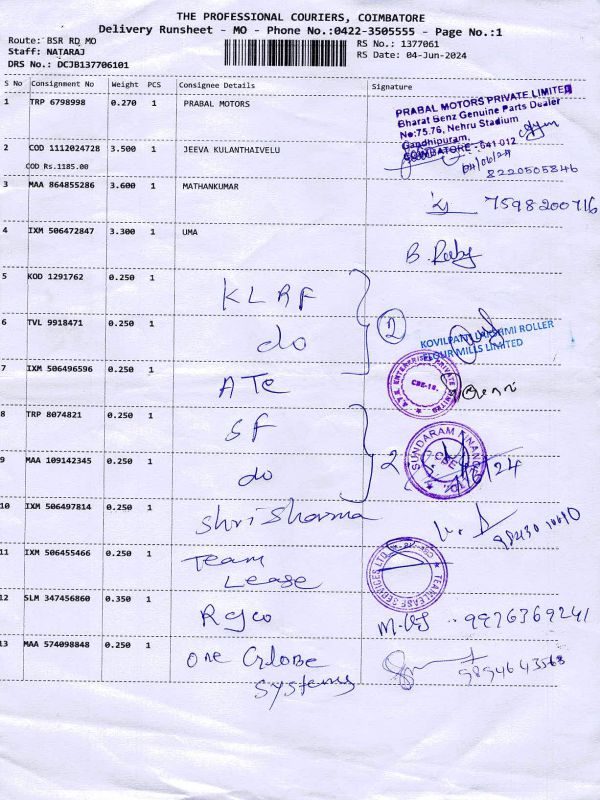 THE PROFESSIONAL COURIERS, COIMBATORE
Delivery Runsheet - MO - Phone No.:0422-3505555 - Page No.:1
Route: BSR RD MO
RS No.: 1377061
Staff: NATARAJ
RS Date: 04-Jun-2024
DRS No.: DCJB137706101
S No Consignment No Weight PCS Consignee Details Signature
1 TRP 6798998 0.270 1 PRABAL MOTORS
PRABAL MOTORS PRIVATE LIMITED
Bharat Benz Genuine Parts Dealer
No:75,76, Nehru Stadium
Gandhipuram,
COIMBATORE - 641 012
2 COD 1112024728 3.500 1 JEEVA KULANTHAIVELU
04/06/24
8220505846
COD Rs.1185.00
3 MAA 864855286 3.600 1 MATHANKUMAR
7598200716
4 IXM 506472847 3.300 1 UMA
B.
5 KOD 1291762 0.250 1 KLRF
2
6 TVL 9918471 0.250 1 do
KOVILPATTI LAKSHMI ROLLER
FLOUR MILLS LIMITED
7 IXM 506496596 0.250 1 ATE
A.T.E. ENTERPRISES PRIVATE LIMITED
CBE-18.
8 TRP 8074821 0.250 1 SF
SUNDARAM FINANCE
CBE
9 MAA 109142345 0.250 1 do
2
10 IXM 506497814 0.250 1 Shri Sharma
11 IXM 506455466 0.250 1 Team
Lease
TEAMLEASE SERVICES LTD
12 SLM 347456860 0.350 1
9976369241
13 MAA 574098848 0.250 1 One Globe
Systems
9894643568